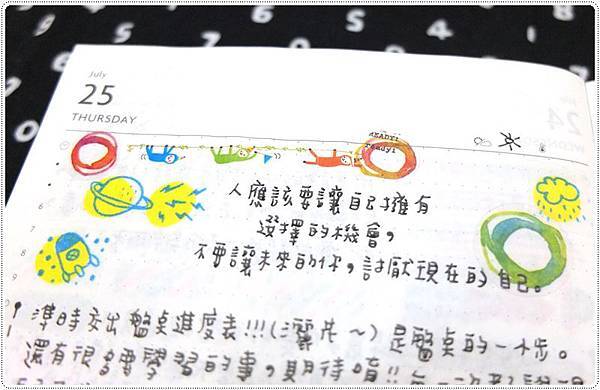 July
25
THURSDAY
READY!
ready!
人應該要讓自己擁有
選擇的機會，
不要讓未來的你，討厭現在的自己。
準時交出盤点進度表!!!(灑花～)是盤点的一小步。
還有很多要學習的事，期待唷!!每一次都